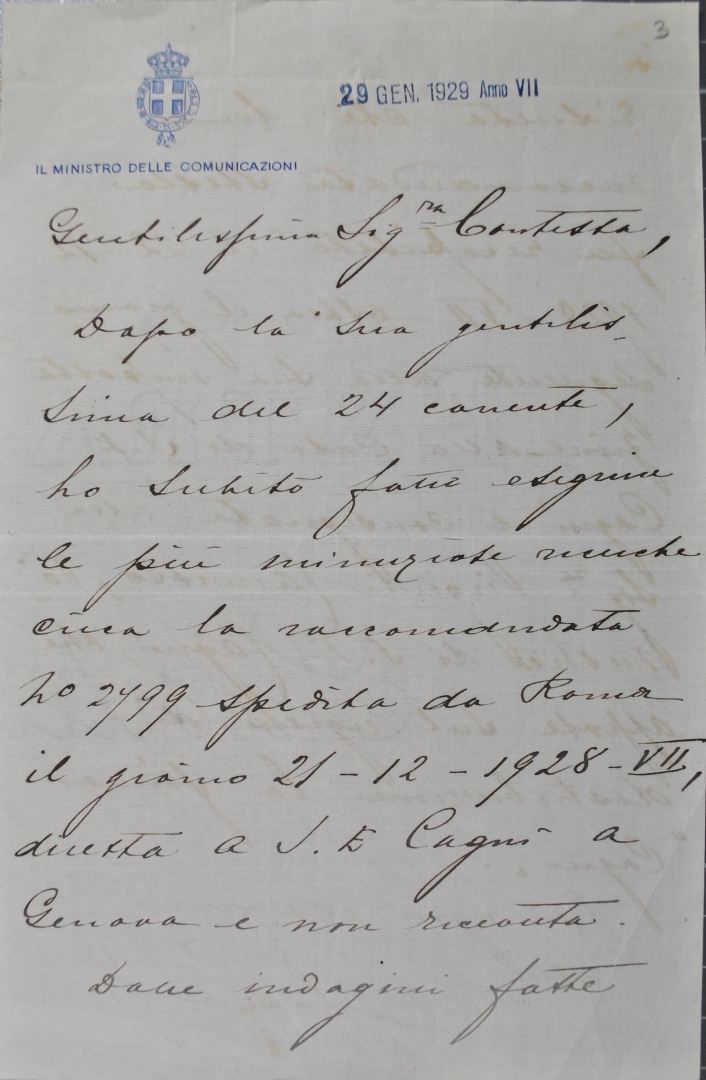 3
29 GEN. 1929 Anno VII
IL MINISTRO DELLE COMUNICAZIONI
Gentilissima Sig.ra Contessa,
Dopo la sua gentilis-
sima del 24 corrente,
ho subito fatto eseguire
le più minuziose ricerche
circa la raccomandata
no 2799 spedita da Roma
il giorno 21-12-1928-VII,
diretta a S. E Cagni a
Genova e non ricevuta.
Dalle indagini fatte